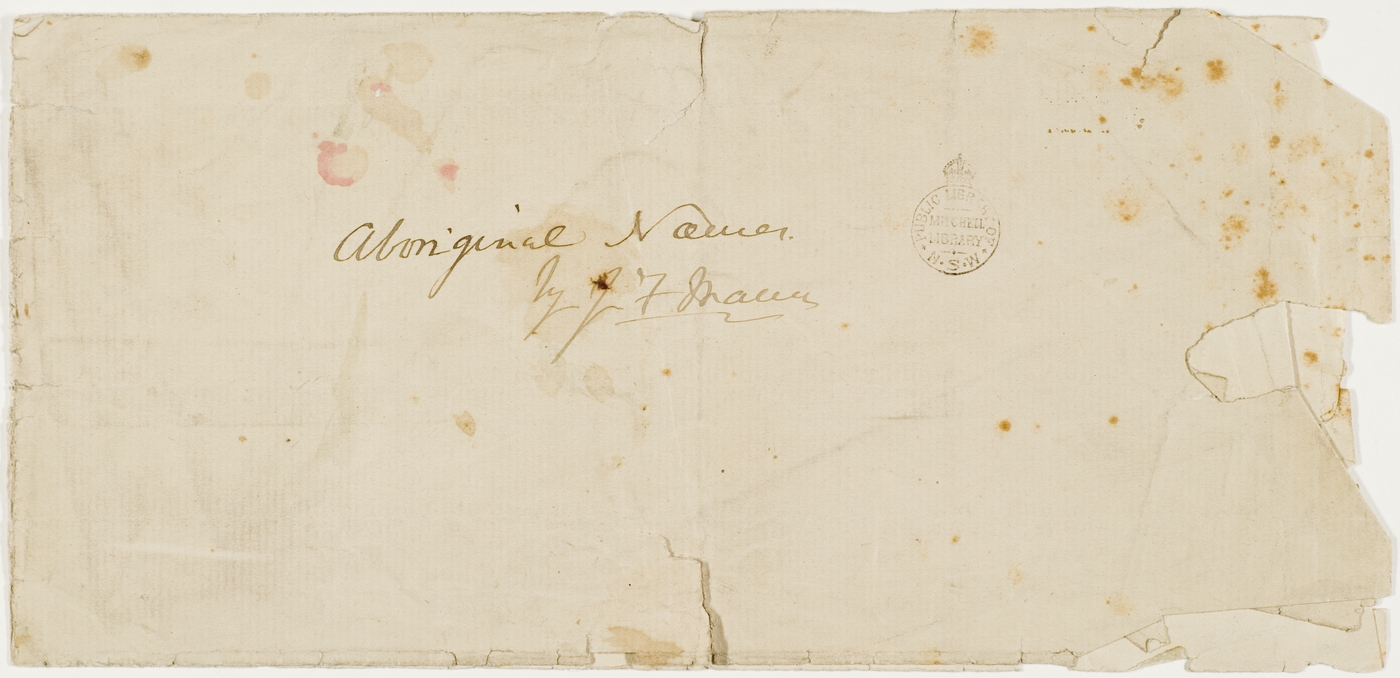 Aboriginal Names.
by J. F. Mann
PUBLIC LIBRARY OF N.S.W.
MITCHELL
LIBRARY